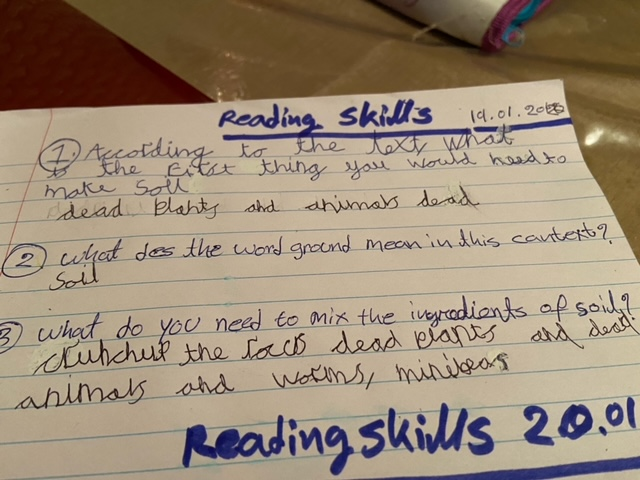 Reading Skills 19.01.20
① According to the text what
is the First thing you would need to
make Soil
dead Plants and animals dead
② what does the word ground mean in this context?
Soil
3 what do you need to mix the ingredients of soil?
the rocks dead plants and dead
animals and worms, minibeas
Reading skills 20.01